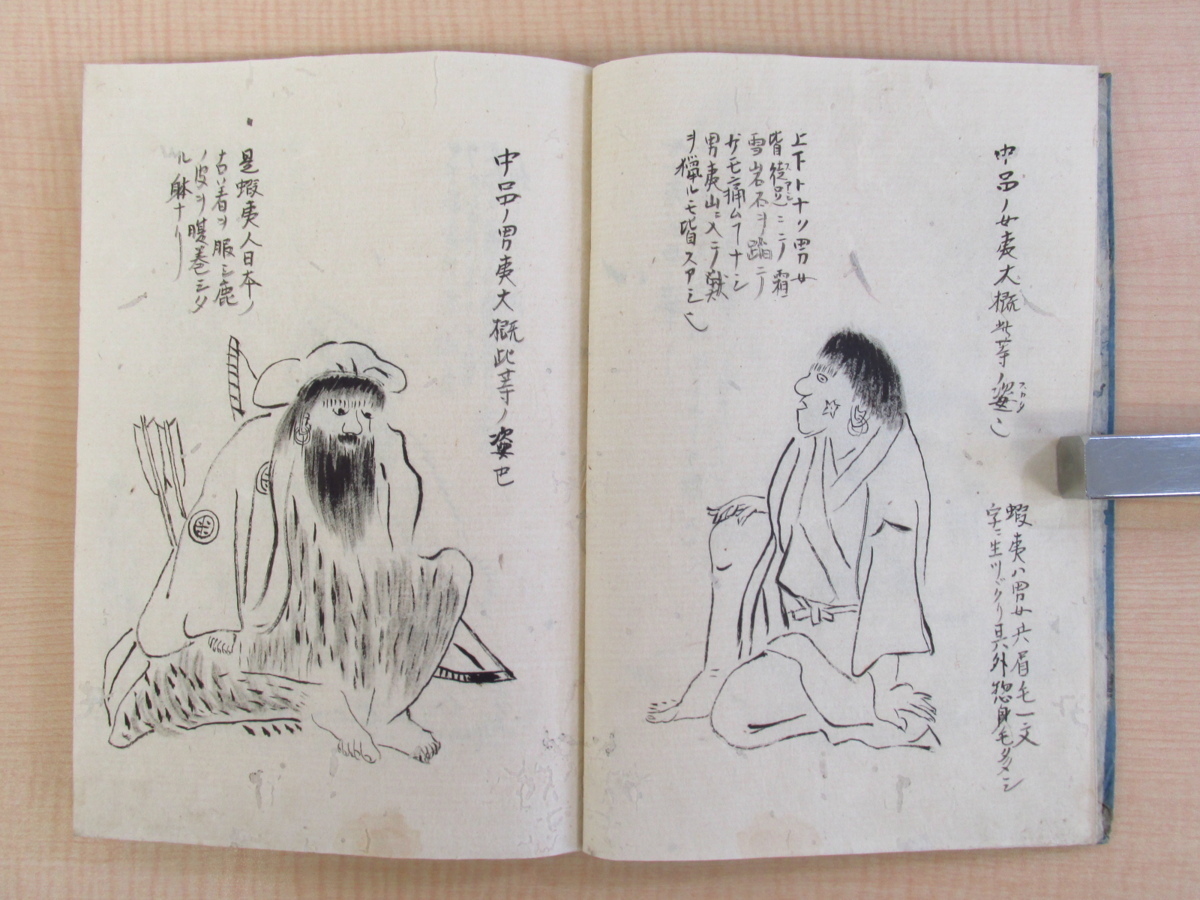 中品ノ女夷大概此等ノ姿也
スカタ
蝦夷ハ男女共眉毛一文
字ニ生ツヾクリ其外惣身毛多シ
上下トナリ男女
皆徒足ニテ霜
スアシ
雪岩石ヲ踏ニテ
ザモ痛ムヿナシ
男夷山ニ入テ獣
ヲ猟ルモ皆スアシ也
中品ノ男夷大概此等ノ姿也
是蝦夷人日本ノ
古着ヲ服シ鹿
ノ皮ヲ腹巻シタ
ル躰ナリ